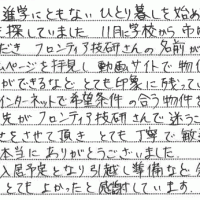 進学にともない ひとり暮しを始め
を探していました 11月に学校から 市内
だき フロンティア技研さんの 名前が
ムページを拝見し 動画サイトで 物件
ができるなど とても印象に残ってい
インターネットで 希望条件の 合う物件
先が フロンティア技研さんで 迷うこ
せをさせて頂き とても 丁寧で 敏速
本当に ありがとうございました
入居予定となり 引越し準備など
とても よかったと 感謝しています